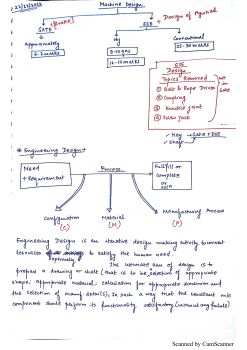 Machine Design
(+Brake)
GATE
ESE
+ Design of Flywheel
Approximately
Obj
Conventional
ESE
Design
Topics Removed
① Belt & Rope Drives
② Coupling
③ Knuckle joint
④ Screw Jack
→ Key → GATE + ESE
→ Shaft
Engineering Design →
Need
+ Requirement
Process
Fulfill or
complete
Configuration
Material
Manufacturing Process
(C)
(M)
(P)
Engineering Design is an iterative design making activity to convert
resources optimally to satisfy the human need.
The ultimate aim of design is to
prepare a drawing or chart (that is to be, selection of appropriate
shape, appropriate material, calculation for appropriate dimension and
the selection of manf details), in such a way that the resultant m/c
component should perform its functionality satisfactory (without any failure)
Scanned by CamScanner